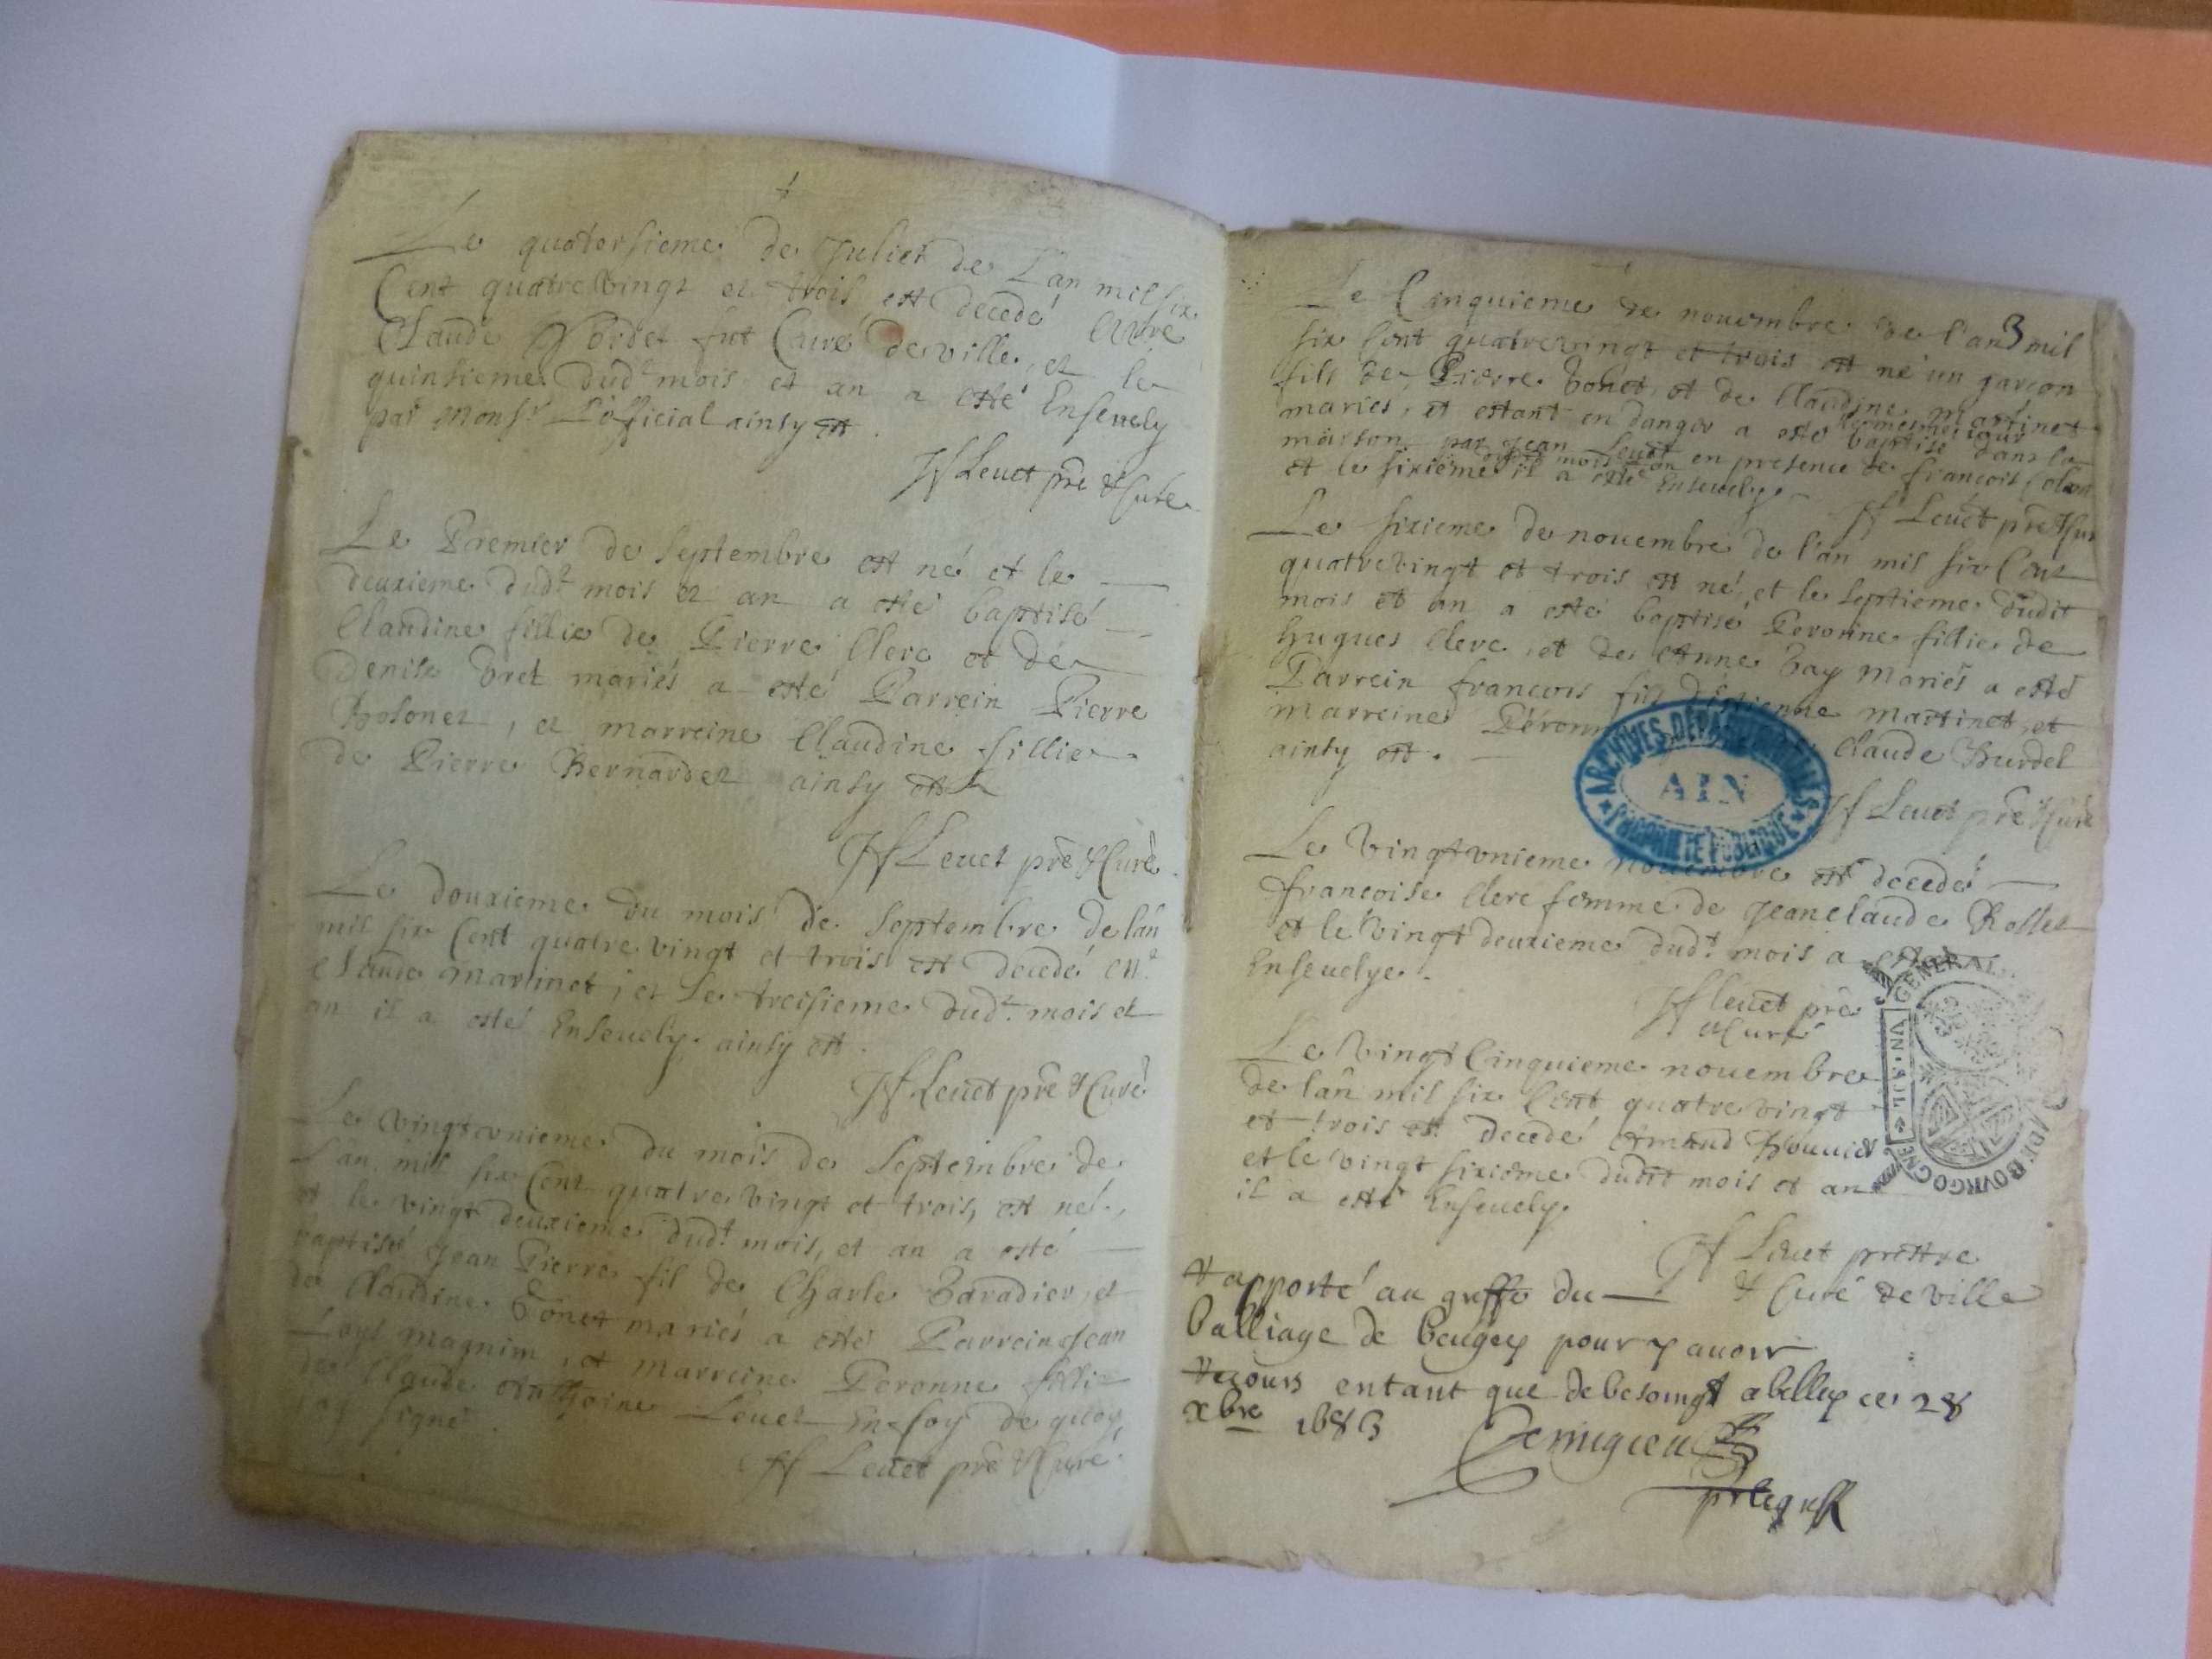 Le quatorsieme de Juliet de L'an mil six
Cent quatre vingt et trois est decedé
Claude fut Curé de ville, et le
quinsieme dud.t mois et an a esté Enseuely
par Mons.r L'official ainsy est.
Leuet pre & Curé
Le Premier de Septembre est né et le
deuxieme dud.t mois et an a esté baptisé
Claudine fillie de Pierre Clerc et de
Denise mariés a esté Parrein Pierre
et marreine Claudine fillie
de Pierre Bernardet ainsy est
Leuet pre & Curé
Le douxieme du mois de Septembre de lan
mil six Cent quatre vingt et trois est decedé
Claude martinet, et Le treisieme dud.t mois et
an il a esté Enseuely ainsy est.
Leuet pre & Curé
Le vingt vnieme du mois de Septembre de
L'an mil six Cent quatre vingt et trois, est né,
et le vingt deuxieme dud.t mois, et an a esté
baptisé Jean Pierre fil de Charle et
de Claudine Tonet mariés a esté Parrein Jean
Loys magnin, et marreine Peronne fillie
de Claude Anthoine Leuet En foy de quoy
jay signé.
Leuet pre & Curé
3
Le Cinquieme de nouembre de l'an mil
six Cent quatre vingt et trois est né un garcon
fils de Pierre Tonet, et de Claudine martinet
mariés, et estant en danger a esté baptisé dans la
maison par Jean Leuet en presence de francois
et le sixieme dudit mois et an il a esté Enseuely
Leuet pre & Cur
Le sixieme de nouembre de l'an mil six Cent
quatre vingt et trois est né, et le septieme dudit
mois et an a esté baptisé Peronne fillie de
hugues Clerc, et de Anne Tay mariés a esté
Parrein francois fils d'Estienne martinet, et
marreine Claude Burdel
ainsy est.
ARCHIVES DÉPARTEMENTALES
AIN
PROPRIÉTÉ PUBLIQUE
Leuet pre & Curé
Le Vingt vnieme nouembre est decedé
francoise Clerc femme de Jean claude Rosset
et le Vingt deuxieme dud.t mois a esté
Enseuelye.
Leuet pre
& Curé
Le Vingt Cinquieme nouembre
de lan mil six Cent quatre vingt
et trois est decedé Bouuier
et le vingt sixieme dudit mois et an
il a esté Enseuely.
Leuet prestre
& Curé de ville
GENERAL
VN SOL
DE BOVRGOGNE
Rapporté au greffe du
Balliage de beugey pour y auoir
recours entant que de besoingt a belley ce 28
xbre 1683